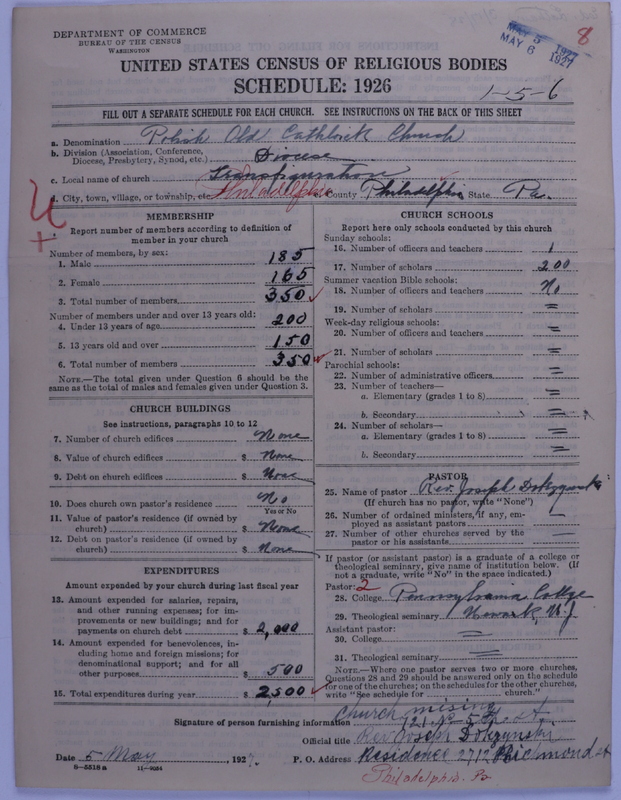 DEPARTMENT OF COMMERCE
BUREAU OF THE CENSUS
WASHINGTON
MAY 5 1927
MAY 6 1927
8
UNITED STATES CENSUS OF RELIGIOUS BODIES
SCHEDULE: 1926
1-5-6
FILL OUT A SEPARATE SCHEDULE FOR EACH CHURCH. SEE INSTRUCTIONS ON THE BACK OF THIS SHEET
a. Denomination Polish Old Cathlick Church
b. Division (Association, Conference, Diocese, Presbytery, Synod, etc.) Diocese
c. Local name of church Transfiguration
d. City, town, village, or township, etc. Philadelphia County Philadelphia State Pa.
MEMBERSHIP
Report number of members according to definition of
member in your church
Number of members, by sex:
1. Male 185
2. Female 165
3. Total number of members 350
Number of members under and over 13 years old:
4. Under 13 years of age 200
5. 13 years old and over 150
6. Total number of members 350
NOTE.—The total given under Question 6 should be the
same as the total of males and females given under Question 3.
CHURCH BUILDINGS
See instructions, paragraphs 10 to 12
7. Number of church edifices None
8. Value of church edifices $ None
9. Debt on church edifices $ None
10. Does church own pastor's residence No
Yes or No
11. Value of pastor's residence (if owned by
church) $ None
12. Debt on pastor's residence (if owned by
church) $ None
EXPENDITURES
Amount expended by your church during last fiscal year
13. Amount expended for salaries, repairs,
and other running expenses; for im-
provements or new buildings; and for
payments on church debt $ 2,000
14. Amount expended for benevolences, in-
cluding home and foreign missions; for
denominational support; and for all
other purposes $ 500
15. Total expenditures during year $ 2,500
CHURCH SCHOOLS
Report here only schools conducted by this church
Sunday schools:
16. Number of officers and teachers 1
17. Number of scholars 200
Summer vacation Bible schools:
18. Number of officers and teachers No
19. Number of scholars =
Week-day religious schools:
20. Number of officers and teachers =
21. Number of scholars =
Parochial schools:
22. Number of administrative officers =
23. Number of teachers—
a. Elementary (grades 1 to 8) =
b. Secondary =
24. Number of scholars—
a. Elementary (grades 1 to 8) =
b. Secondary =
PASTOR
25. Name of pastor Rev. Joseph
(If church has no pastor, write "None")
26. Number of ordained ministers, if any, em-
ployed as assistant pastors
27. Number of other churches served by the
pastor or his assistants
If pastor (or assistant pastor) is a graduate of a college or
theological seminary, give name of institution below. (If
not a graduate, write "No" in the space indicated.)
Pastor: 2
28. College Pennsylvania College
29. Theological seminary Newark, N.J.
Assistant pastor:
30. College =
31. Theological seminary =
NOTE.—Where one pastor serves two or more churches,
Questions 28 and 29 should be answered only on the schedule
for one of the churches; on the schedules for the other churches,
write "See schedule for church."
Signature of person furnishing information
Church
721 N. 5th St.
Official title Rev Joseph Dokzynski
Date 5 May 1927. P. O. Address Residence 2712 Richmond st
8—5518 a 11—9034
Philadelphia. Pa